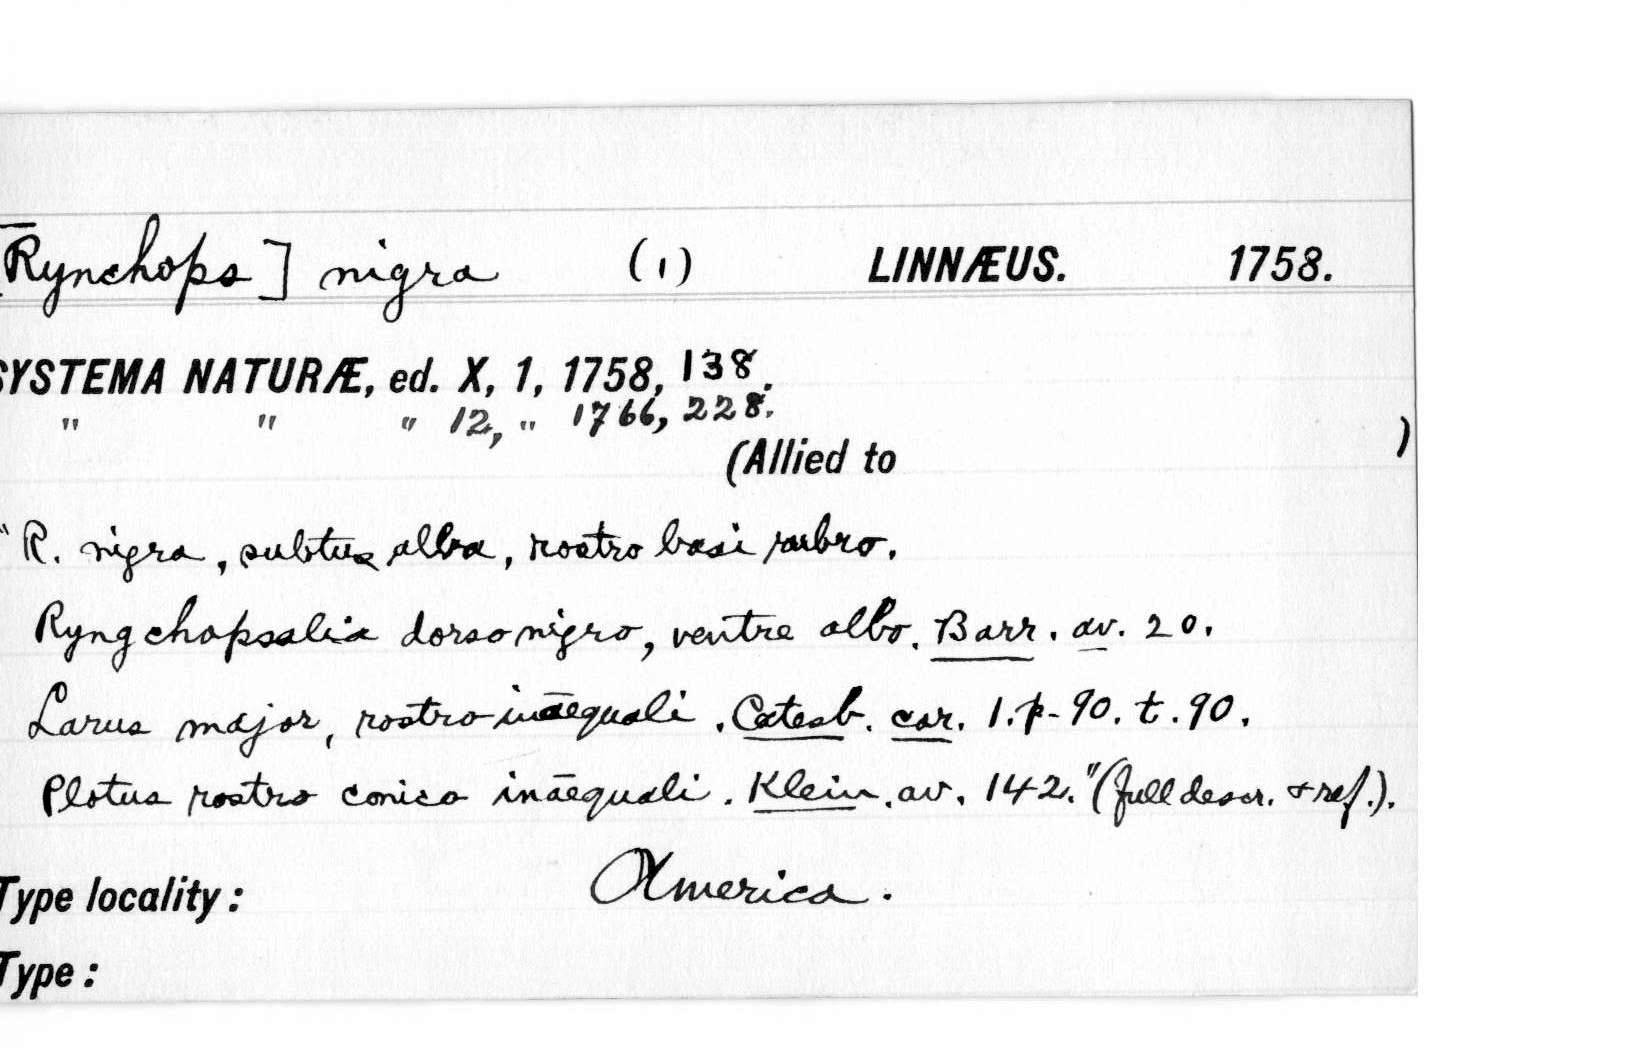 [Rynchops] nigra (1) LINNÆUS. 1758.
SYSTEMA NATURÆ, ed. X, 1, 1758, 138.
" " " 12, " 1766, 228.
(Allied to )
"R. nigra, subtus alba, rostro basi rubro.
Ryngchopsalia dorso nigro, ventre albo. Barr. av. 20.
Larus major, rostro inæquali. Catesb. car. 1. p. 90. t. 90.
Plotus rostro conico inæquali. Klein. av. 142." (full descr. & ref.).
Type locality: America.
Type: